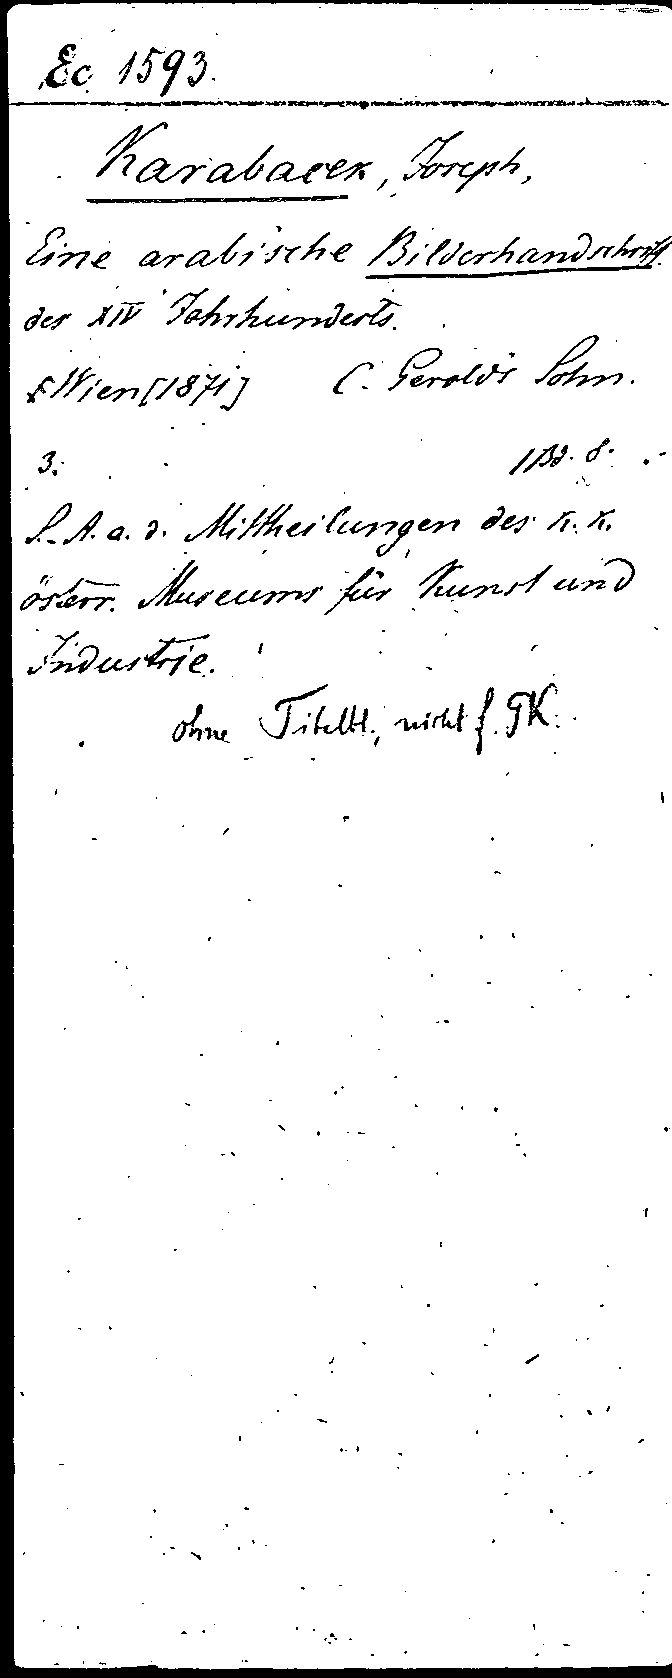 Ec 1593.
Karabacek, Joseph,
Eine arabische Bilderhandschrift
des XIV Jahrhunderts.
Wien [1871] C. Gerold's Sohn.
3. 1 Bd. 8.
S.-A. a. d. Mittheilungen des k. k.
österr. Museums für Kunst und
Industrie.
ohne Titelbl., nicht f. GK.